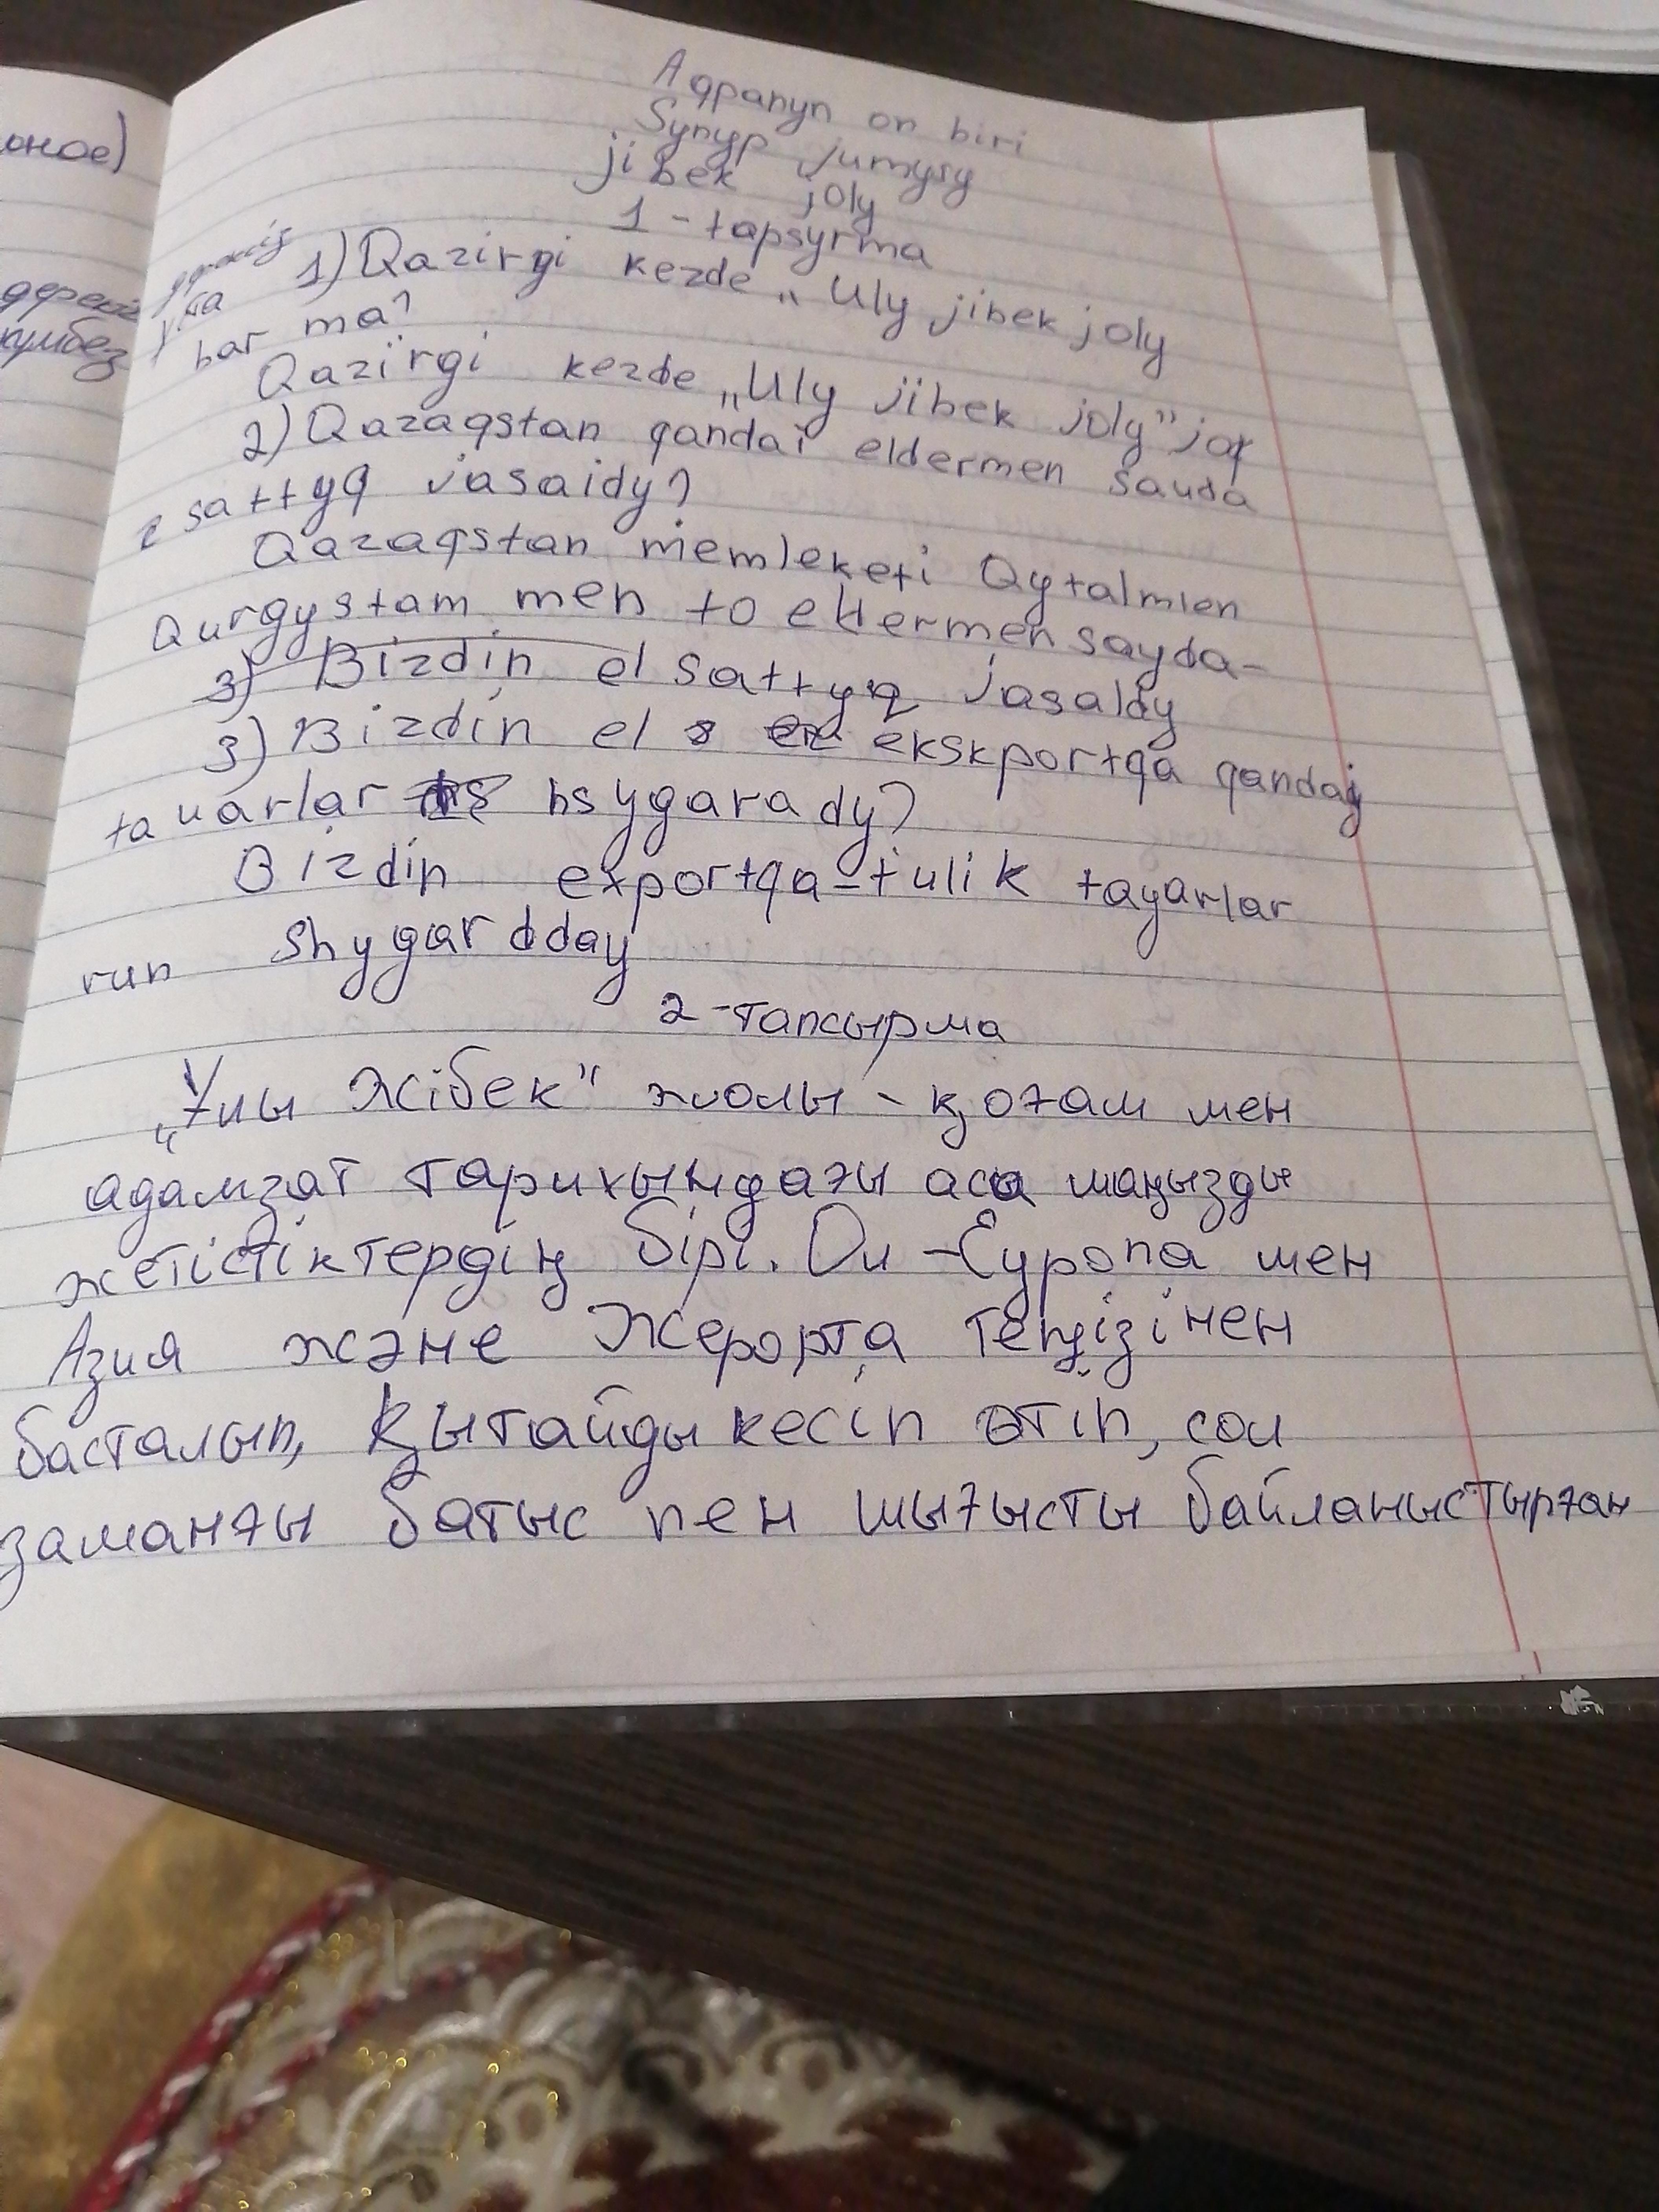 ьное)
дереві
күмбез
Aqpanyn on biri
Synyp jumysy
jibek joly
1-tapsyrma
1) Qazirgi kezde „Uly jibek joly
bar ma?
Qazirgi kezde „Uly jibek joly" joq
2) Qazaqstan qandai eldermen sauda
sattyq jasaidy?
Qazaqstan memleketi Qytalmien
Qurgystam men to eldermen sayda-
3) Bizdin el sattyq jasaldy
3) Bizdin el ekskportqa qandaj
tauarlar hsygarady?
Bizdin exportqa-tulik tayarlar
run shygardday
2-тапсырма
„Ұлы Жібек" жолы - қоғам мен
адамзат тарихындағы аса маңызды
жетістіктердің бірі. Ол -Еуропа мен
Азия және Жерорта теңізінен
басталып, Қытайды кесіп өтіп, сол
заманғы батыс пен шығысты байланыстырған